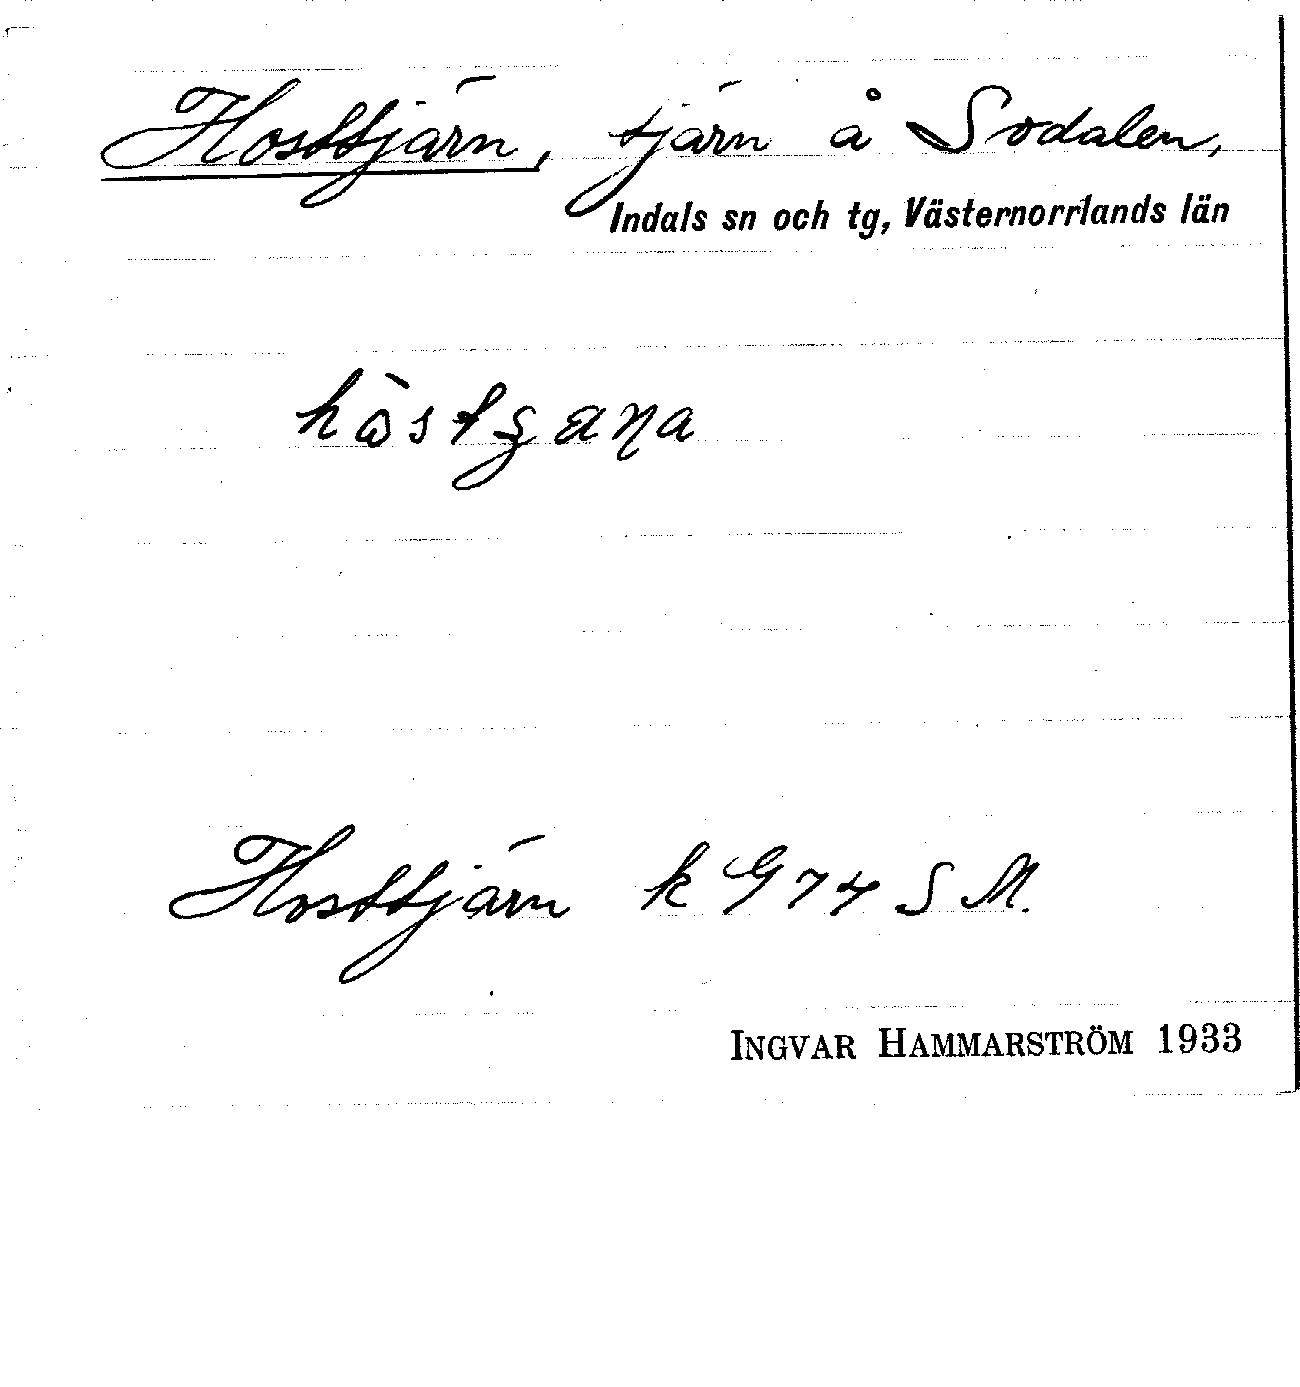 Hosttjärn, tjärn å Sodalen,
Indals sn och tg, Västernorrlands län
Hosttjärn k G74 S M.
INGVAR HAMMARSTRÖM 1933